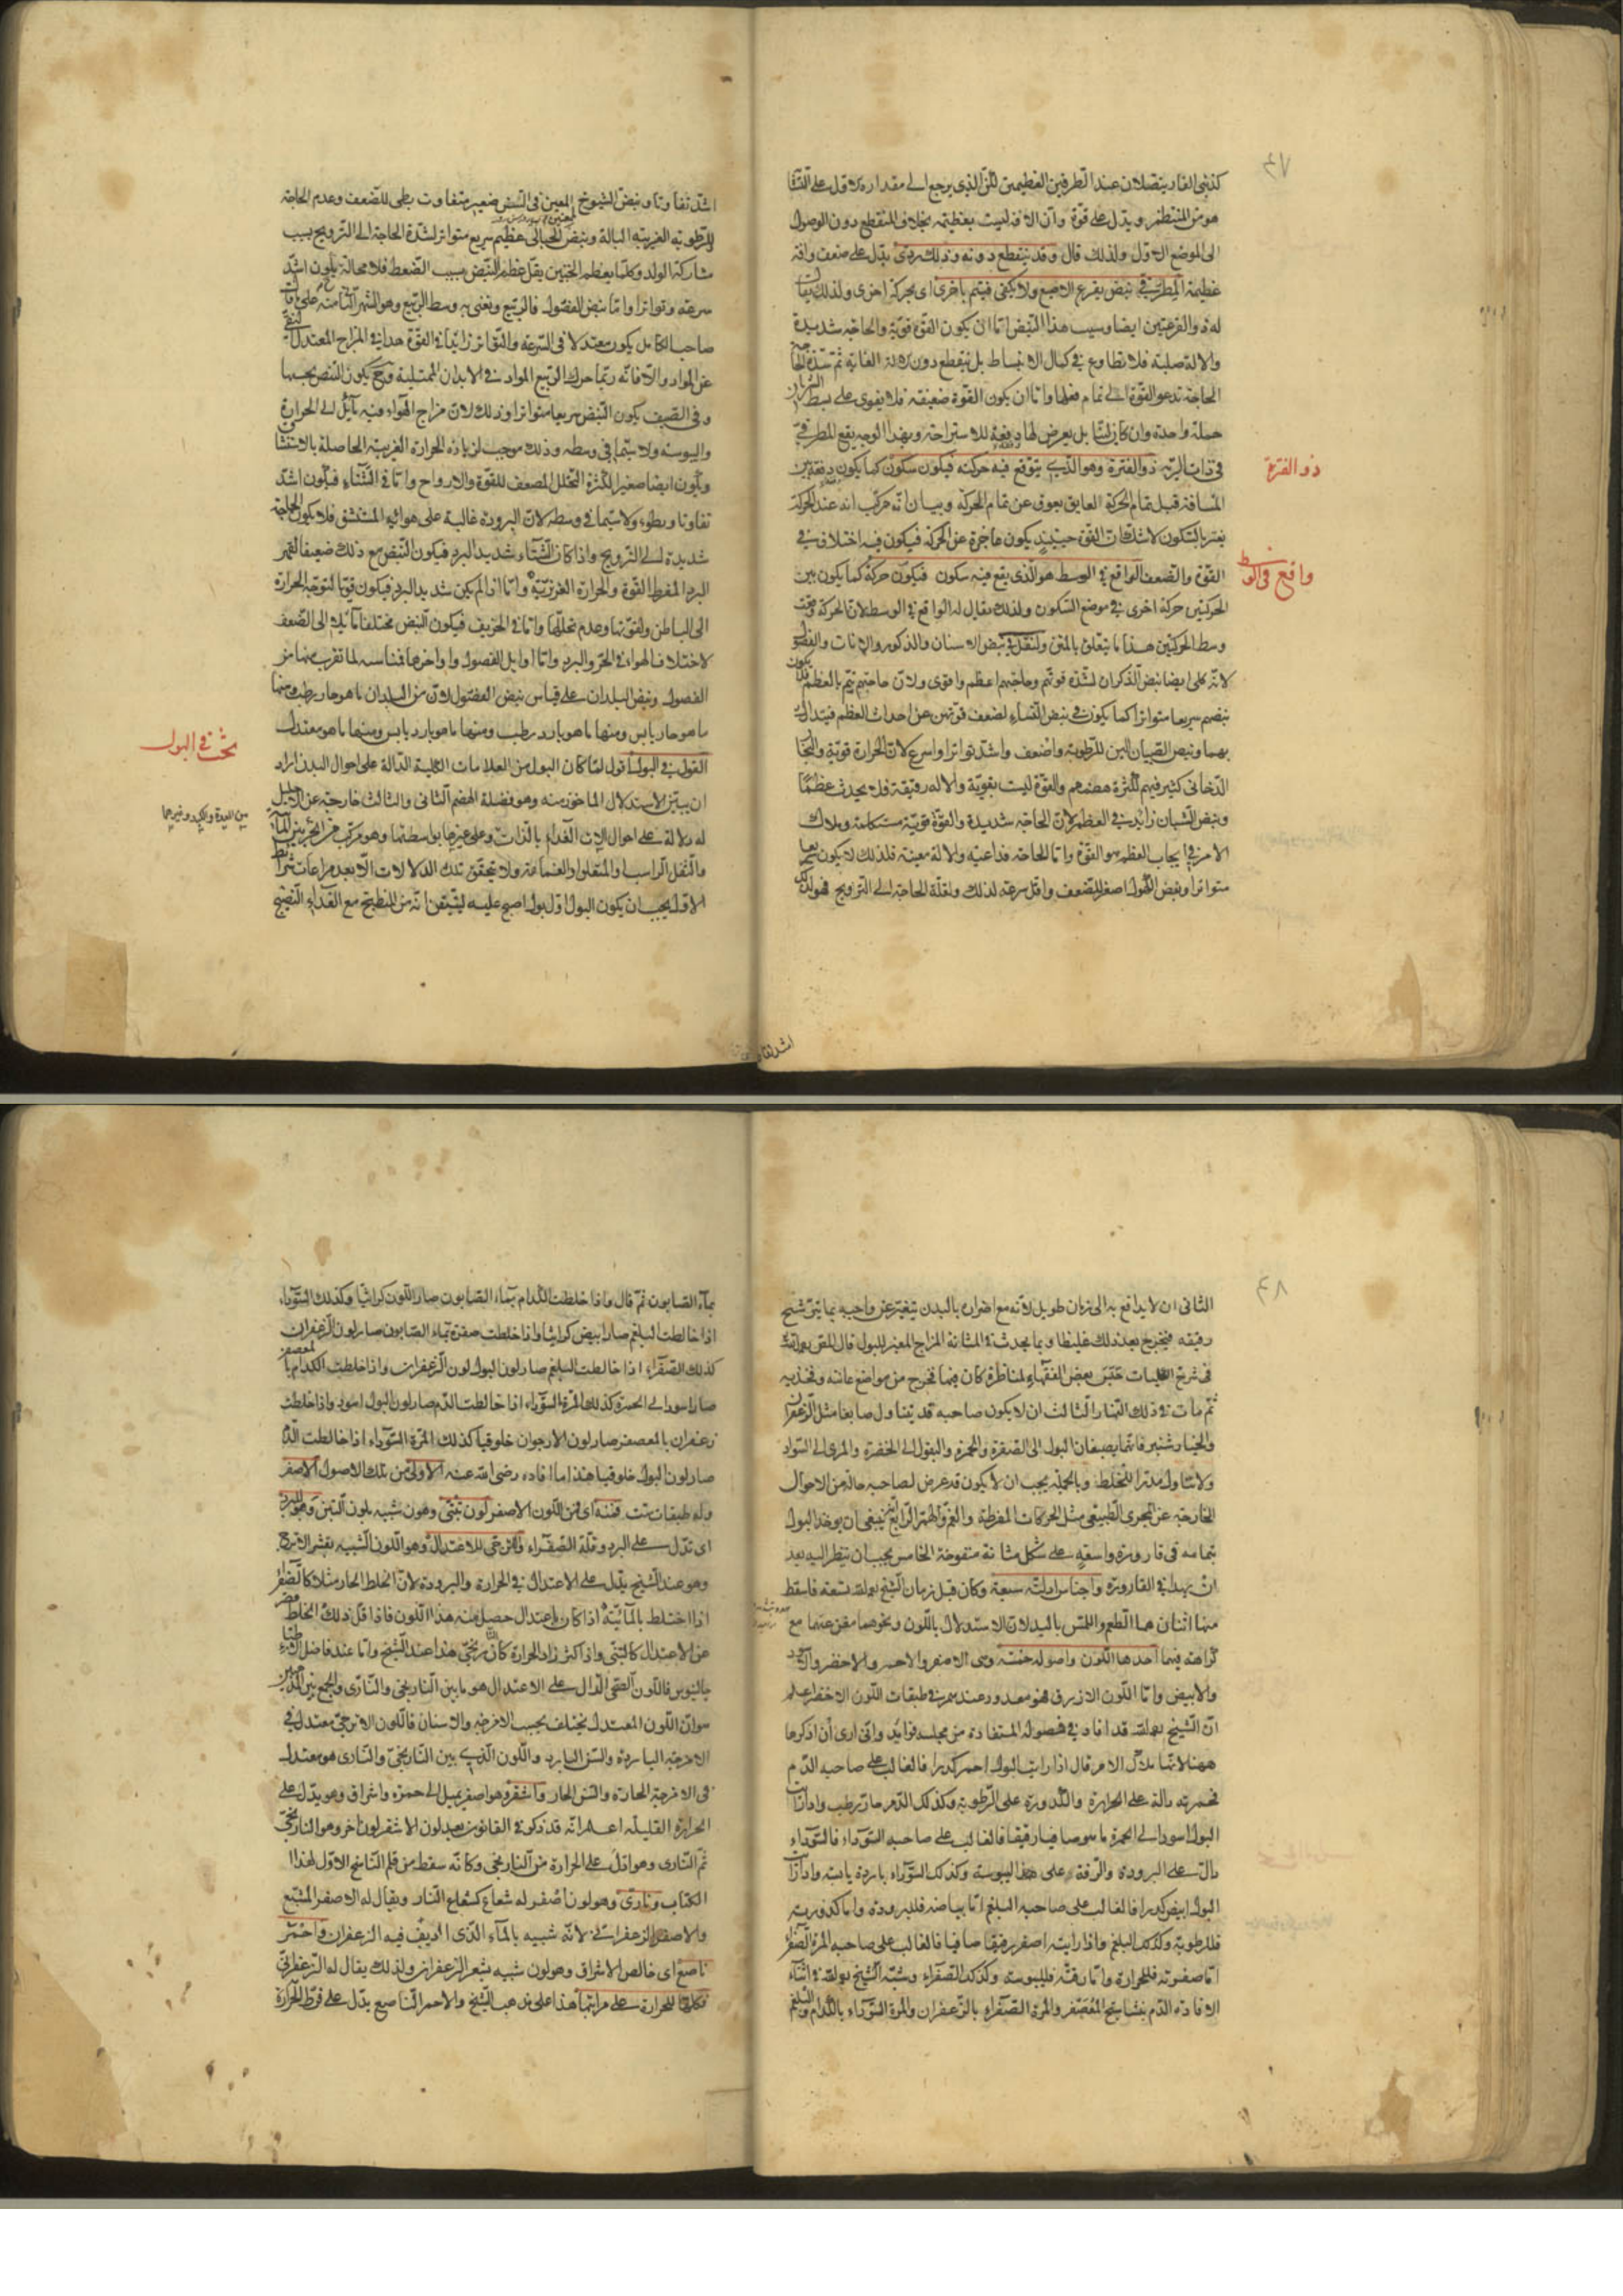 ٤٧
كذنبى الفار يتصلان عند الطرفين العظيمين لكن الذى يرجع الى مقداره الاول على
هو من المنتظم ويدل على قوة وان الافة ليست بعظيمة بخلاف المنقطع دون الوصول
الى الموضع الاول ولذلك قال وقد ينقطع دونه وذلك ردى يدل على ضعف وافة
عظيمة المطرقى نبض يقرع الاصبع ولا يكفى فيتم باخرى اى بحركة اخرى ولذلك يقال
له ذو القرعتين ايضا وسبب هذا النبض اما ان يكون القوة قوية والحاجة شديدة
والالة صلبة فلا تطاوع فى كمال الانبساط بل ينقطع دون بلاغ الغاية ثم شدة
الحاجة تدعو القوة الى تمام فعلها واما ان يكون القوة ضعيفة فلا يقوى على بسط الشريان
جملة واحدة وان كان لينا بل يعرض لها دفعة للاستراحة وبهذا الوجه يقع المطرقى
فى ذات الرية ذو الفترة وهو الذى يتوقع فيه حركة فيكون سكون كما يكون دفعة من
ذو الفترة
المسافة قبل تمام الحركة العايق يعوق عن تمام الحركة وبيان انه مركب انه عند الحركة
يغتر بالسكون لا شك ان القوة حينئذ يكون عاجزة عن الحركة فيكون فيه اختلاف فى
القوة والضعف الواقع فى الوسط هو الذى يقع فيه سكون فيكون حركة كما يكون بين
واقع فى الوسط
الحركتين حركة اخرى فى موضع السكون ولذلك يقال له الواقع فى الوسط لان الحركة وقعت
وسط الحركتين هذا ما يتعلق بالمتن ولنقل فى نبض الاسنان والذكور والاناث والفصول
لانه كلى ايضا نبض الذكران لشدة قوتهم وحاجتهم اعظم واقوى ولان حاجتهم يتم بالعظم فلا يكون
نبضهم سريعا متواترا كما يكون فى نبض النساء لضعف قوتهن عن احداث العظم فيتدارك
بهما ونبض الصبيان الين للرطوبة واضعف واشد تواترا واسرع لان الحرارة قوية والبخار
الدخانى كثير فيهم لكثرة هضمهم والقوة ليست بقوية والالة رقيقة فلا يحدث عظما
ونبض الشبان زايد فى العظم لان الحاجة شديدة والقوة قوية مستكملة وملاك
الامر فى ايجاب العظم هو القوة واما الحاجة فداعية والالة معينة فلذلك لا يكون سريعا
متواترا ونبض الكهول اصغر للضعف واقل سرعة لذلك ولقلة الحاجة الى الترويح فهو لذلك
اشد تفاوتا ونبض الشيوخ الممعنين فى السن صغير متفاوت بطى للضعف وعدم الحاجة
للرطوبة الغريبة البالة ونبض الحبالى عظيم سريع متواتر لشدة الحاجة الى الترويح بسبب
مشاركة الولد وكلما يعظم الجنين يقل عظم النبض بسبب الضغط فلا محالة يكون اشد
سرعة وتواترا واما نبض الفصول فالربيع ونعنى به وسط الربيع وهو الشهر
صاحب الكامل يكون معتدلا فى السرعة والتواتر زايدا فى القوة هذا فى المزاج المعتدل النقى
عن المواد والا فانه ربما حرك الربيع المواد فى الابدان الممتلية وح يكون النبض بحسبها
وفى الصيف يكون النبض سريعا متواترا وذلك لان مزاج الهواء فيه مايل الى الحرارة
واليبوسة ولا سيما فى وسطه وذلك موجب لزيادة الحرارة الغريبة الحاصلة بالاستنشاق
ويكون ايضا صغيرا لكثرة التحلل المضعف للقوة والارواح واما فى الشتاء فيكون اشد
تفاوتا وبطوءا ولا سيما فى وسطه لان البرودة غالبة على هوائه المستنشق فلا يكون الحاجة
شديدة الى الترويح واذا كان الشتاء شديد البرد فيكون النبض مع ذلك ضعيفا لقهر
البرد المفرط القوة والحرارة الغريزية واما اذا لم يكن شديد البرد فيكون قويا لتوجه الحرارة
الى الباطن ولقوتها وعدم تحللها واما فى الخريف فيكون النبض مختلفا مائلا الى الضعف
لاختلاف الهواء فى الحر والبرد واما اوايل الفصول واواخرها فمناسبة لما تقرب منها من
الفصول ونبض البلدان على قياس نبض الفصول لان من البلدان ما هو حار رطب ومنها
ما هو حار يابس ومنها ما هو بارد رطب ومنها ما هو بارد يابس ومنها ما هو معتدل
بحث فى البول
القول فى البول اقول لما كان البول من العلامات الكلية الدالة على احوال البدن اراد
ان يبين الاستدلال الماخوذ منه وهو فضلة الهضم الثانى والثالث خارجة عن الاحليل
بين المعدة والكبد وغيرهما
له دلالة على احوال الات الغذاء بالذات وعلى غيرها بواسطتها وهو مركب من
والثفل الراسب والمتعلق والغمامة ولا تتحقق تلك الدلالات الا بعد مراعات شرايط
الاول يجب ان يكون البول اول بول اصبح عليه ليتيقن انه من المنطبخ مع الغذاء النضيج
٤٨
الثانى ان لا يدافع به الى زمان طويل لانه مع اضراره بالبدن يتغير عن واجبه
رقيقه فيخرج بعد ذلك غليظا وبما يحدث فى المثانة المزاج المغير للبول قال
فى شرح الكليات حبس بعض الفقهاء لمناظرة كان فيها فخرج من مواضع عانته وفخذيه
ثم مات فى ذلك النهار الثالث ان لا يكون صاحبه قد يتناول صابغا مثل الزعفران
والخيار شنبر فانهما يصبغان البول الى الصفرة والحمرة والبقول الى الخضرة والمرى الى السواد
ولا يتناول مدرا للخلط وبالجملة يجب ان لا يكون قد عرض لصاحبه حالة من الاحوال
الخارجة عن المجرى الطبيعى مثل الحركات المفرطة والغم والهم الرابع ينبغى ان يوخذ البول
بتمامه فى قارورة واسعة على شكل مثانة منفوخة الخامس يجب ان ينظر اليه بعد
ان يهدا فى القارورة واجناس ادلته سبعة وكان قبل زمان الشيخ تسعة فاسقط
منها اثنان هما الطعم واللمس باليد لان الاستدلال باللون ونحوه يغنى عنهما مع
كراهته فيهما احدها اللون واصوله خمسة وهى الاصفر والاحمر والاخضر والاسود
والابيض واما اللون الازرق فهو معدود عندهم فى طبقات اللون الاخضر اعلم
ان الشيخ قد افاد فى فصوله المستفادة من مجلسه فوايد وانى ارى ان اذكرها
ههنا لانها ملاك الامر قال اذا رايت البول احمر كدرا فالغالب على صاحبه الدم
فحمرته دالة على الحرارة والكدورة على الرطوبة وكذلك الدم حار رطب واذا رايت
البول اسود الى الحمرة ما هو صافيا رقيقا فالغالب على صاحبه السوداء فالسوداء
دال على البرودة والرقة على هذا اليبوسة وكذلك السوداء باردة يابسة واذا رايت
البول ابيض كدرا فالغالب على صاحبه البلغم اما بياضه فللبرودة واما كدورته
فللرطوبة وكذلك البلغم واذا رايته اصفر رقيقا صافيا فالغالب على صاحبه المرة الصفراء
اما صفرته فللحرارة واما رقته فلليبوسة وكذلك الصفراء وشبه الشيخ فى اثناء
الافادة الدم بنشاستج المعصفر والمرة الصفراء بالزعفران والمرة السوداء والبلغم
بماء الصابون ثم قال واذا خلطت بماء الصابون صار اللون كراثيا وكذلك السوداء
اذا خالطت البلغم صار ابيض كراثيا واذا خلطت صفرة بماء الصابون صار لون الزعفران
كذلك الصفراء اذا خالطت البلغم صار لون البول لون الزعفران واذا خلطت بالمعصفر
صار اسود الى الحمرة كذلك المرة السوداء اذا خالطت الدم صار لون البول اسود واذا خلطت
زعفران بالمعصفر صار لون الارجوان خلوقيا كذلك المرة السوداء اذا خالطت الدم
صار لون البول خلوقيا هذا ما افاده رضى الله عنه الاولى من تلك الاصول الاصفر
وله طبقات ست فمنه اى فمن اللون الاصفر لون تبنى وهو لون شبيه بلون التبن وهو للبرد
اى تدل على البرد وقلة الصفراء واترجى للاعتدال وهو اللون الشبيه بقشر الاترج
وهو عند الشيخ يدل على الاعتدال فى الحرارة والبرودة لان الخلط الحار مثلا كالصفراء
اذا اختلط بالمائية اذا كان باعتدال حصل منه هذا اللون فاذا قل ذلك الخلط
عن الاعتدال كالتبنى واذا كثر زاد الحرارة كالنارنجى هذا عند الشيخ واما عند فاضل الاطباء
جالينوس فاللون الصحى الدال على الاعتدال هو ما بين النارنجى والنارى والجمع بين
هو ان اللون المعتدل يختلف بحسب الامزجة والاسنان فاللون الاترجى معتدل فى
الامزجة الباردة والسن البارد واللون الذى بين النارنجى والنارى هو معتدل
فى الامزجة الحارة والسن الحار واشقر وهو اصفر يميل الى حمرة واشراق وهو يدل على
الحرارة القليلة اعلم انه قد ذكر فى القانون بعد لون الاشقر لون اخر وهو النارنجى
ثم النارى وهو اقل على الحرارة من النارنجى وكانه سقط من قلم الناسخ الاول لهذا
الكتاب ونارى وهو لون اصفر له شعاع كشعاع النار ويقال له الاصفر المشبع
والاصفر الزعفرانى لانه شبيه بالماء الذى اديف فيه الزعفران واحمر
ناصع اى خالص الاشراق وهو لون شبيه بشعر الزعفران ولذلك يقال له الزعفرانى
فكلها للحرارة على مراتبها هذا على مذهب الشيخ والاحمر الناصع يدل على فرط الحرارة